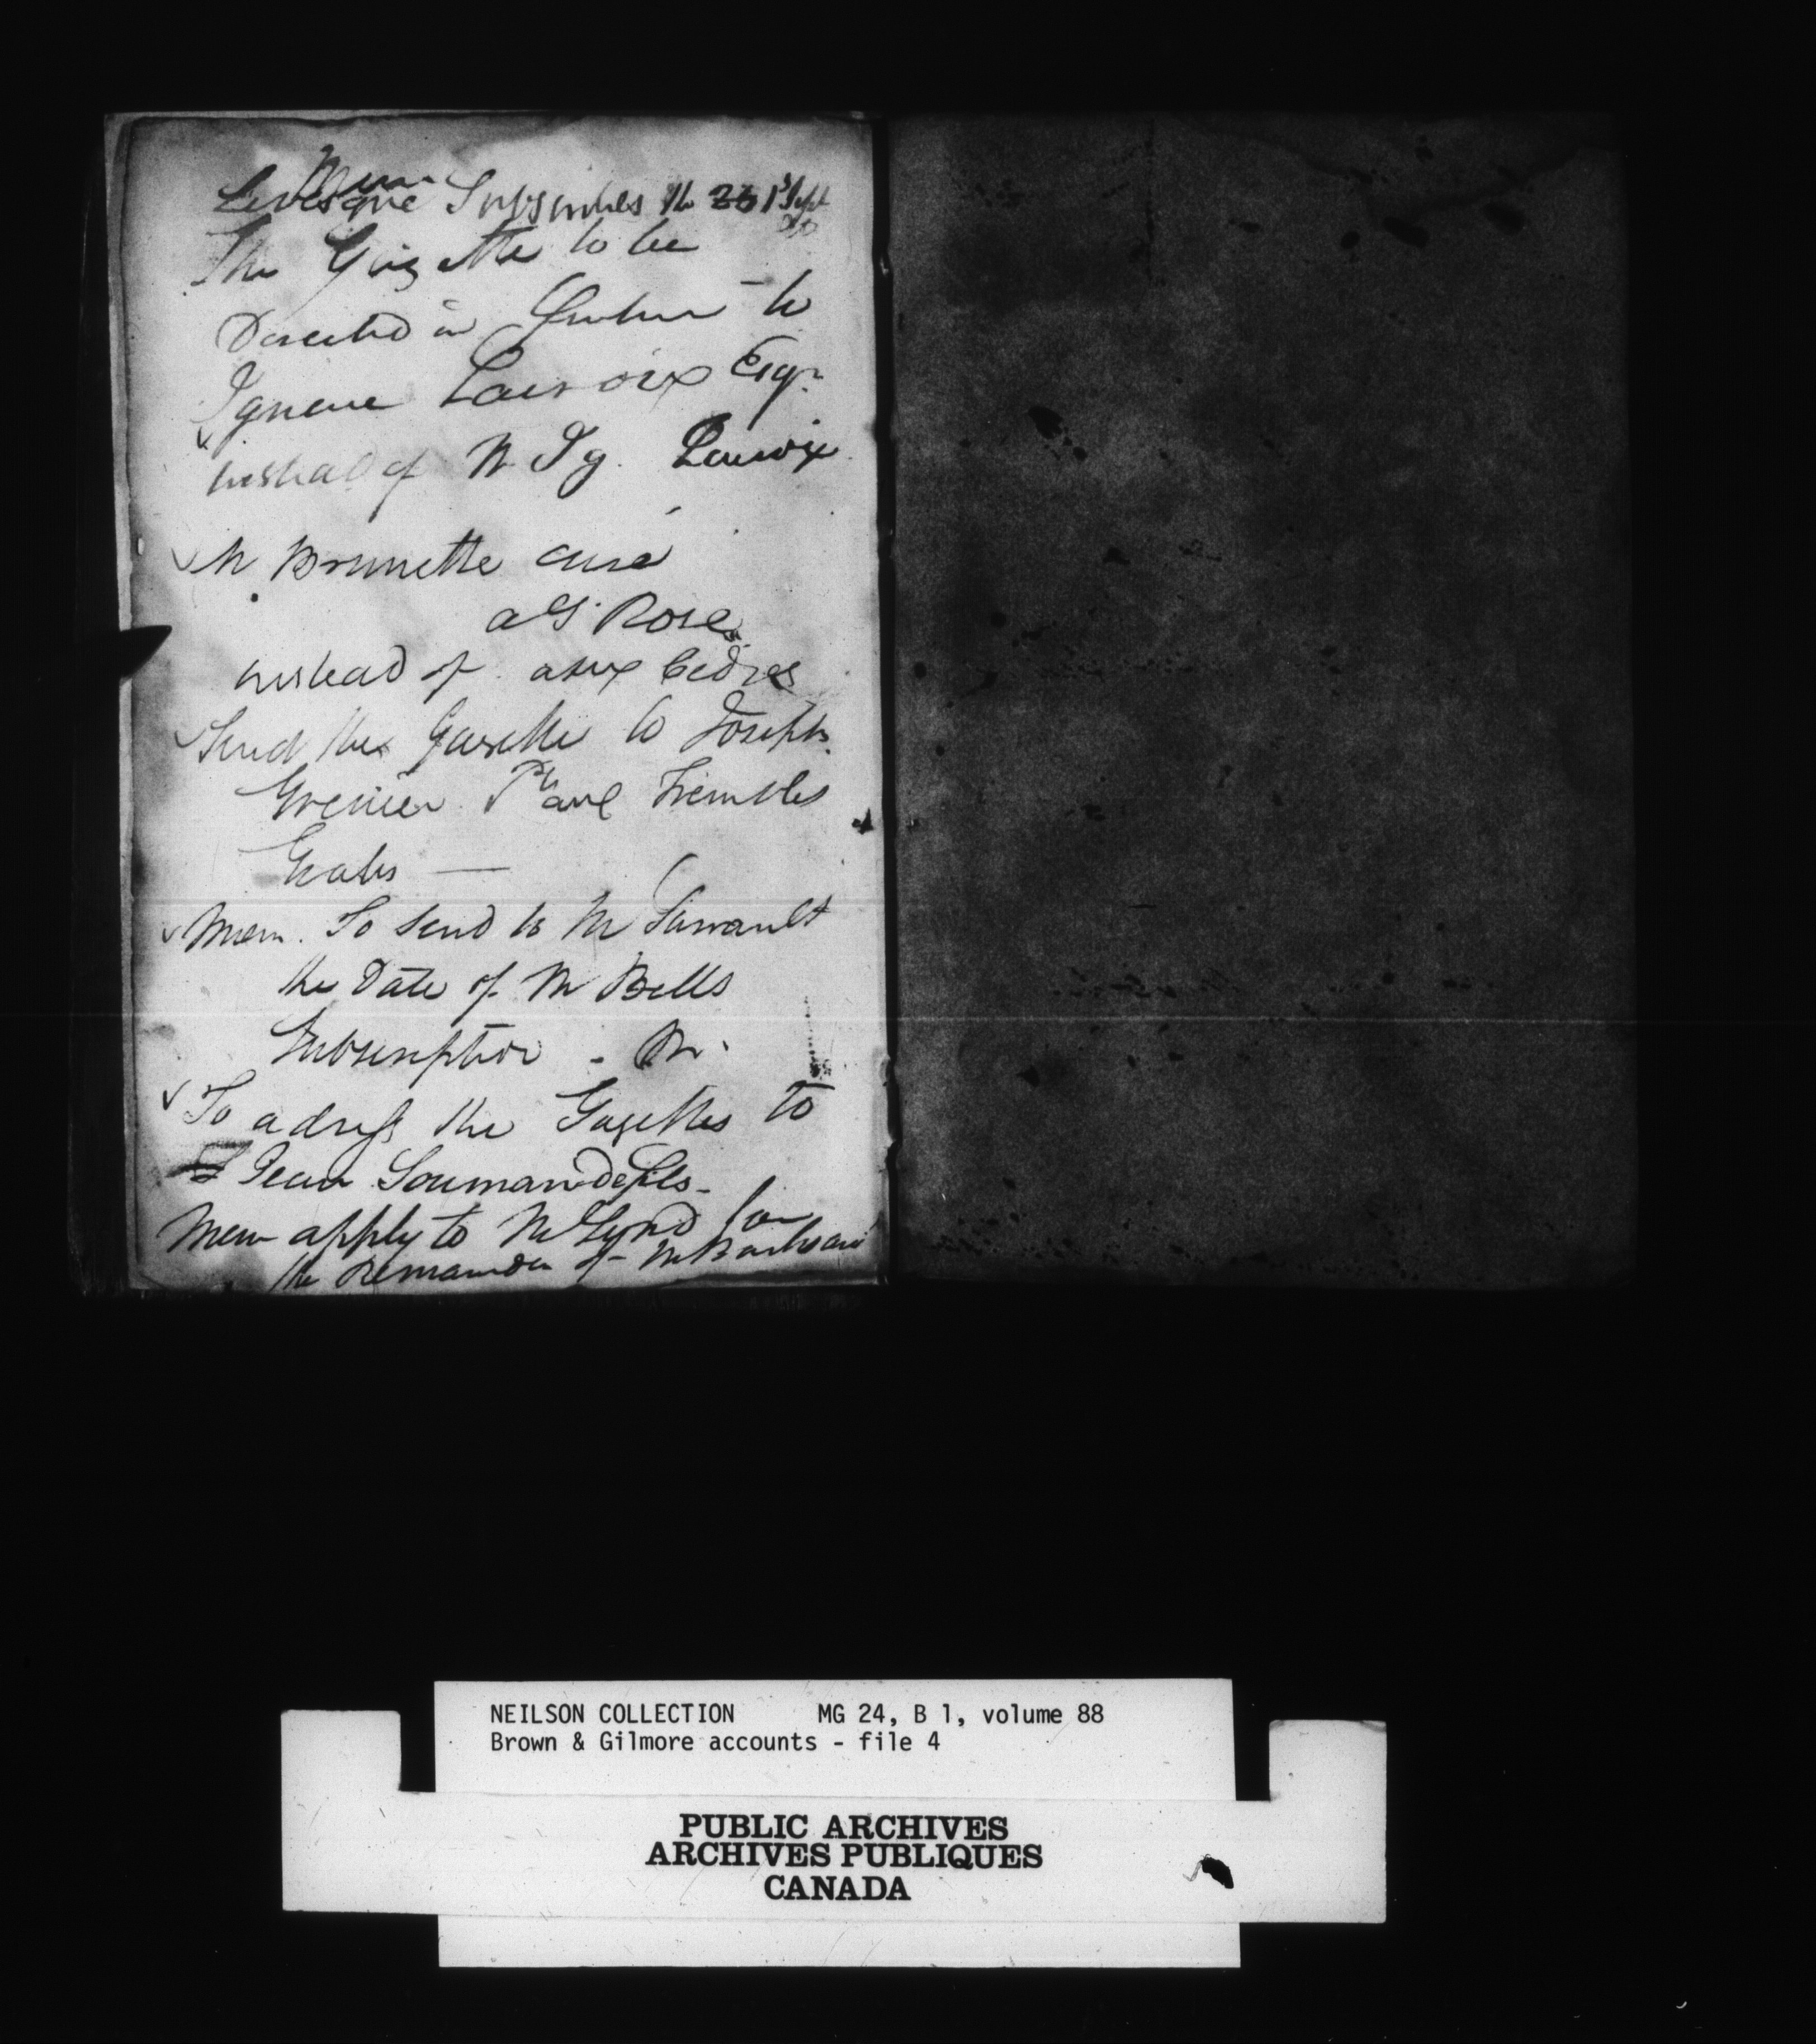 Mem
Levesque Subscribes the 26 1st Sept
The Gazette to be
Directed in future to
Ignace Lacroix Esqr.
instead of M Ig. Lacroix
M Brunette curé
a St Rose
instead of aux Cedres
Send the Gazette to Joseph
Grenier Pte aux Trembles
Gratis —
Mem. To send to M Tarrault
the Date of M Bells
Subscription - M.
To adress the Gazettes to
Jean Soumande fils -
Mem apply to M Lynd for
the Remainder of M
NEILSON COLLECTION MG 24, B 1, volume 88
Brown & Gilmore accounts - file 4
PUBLIC ARCHIVES
ARCHIVES PUBLIQUES
CANADA